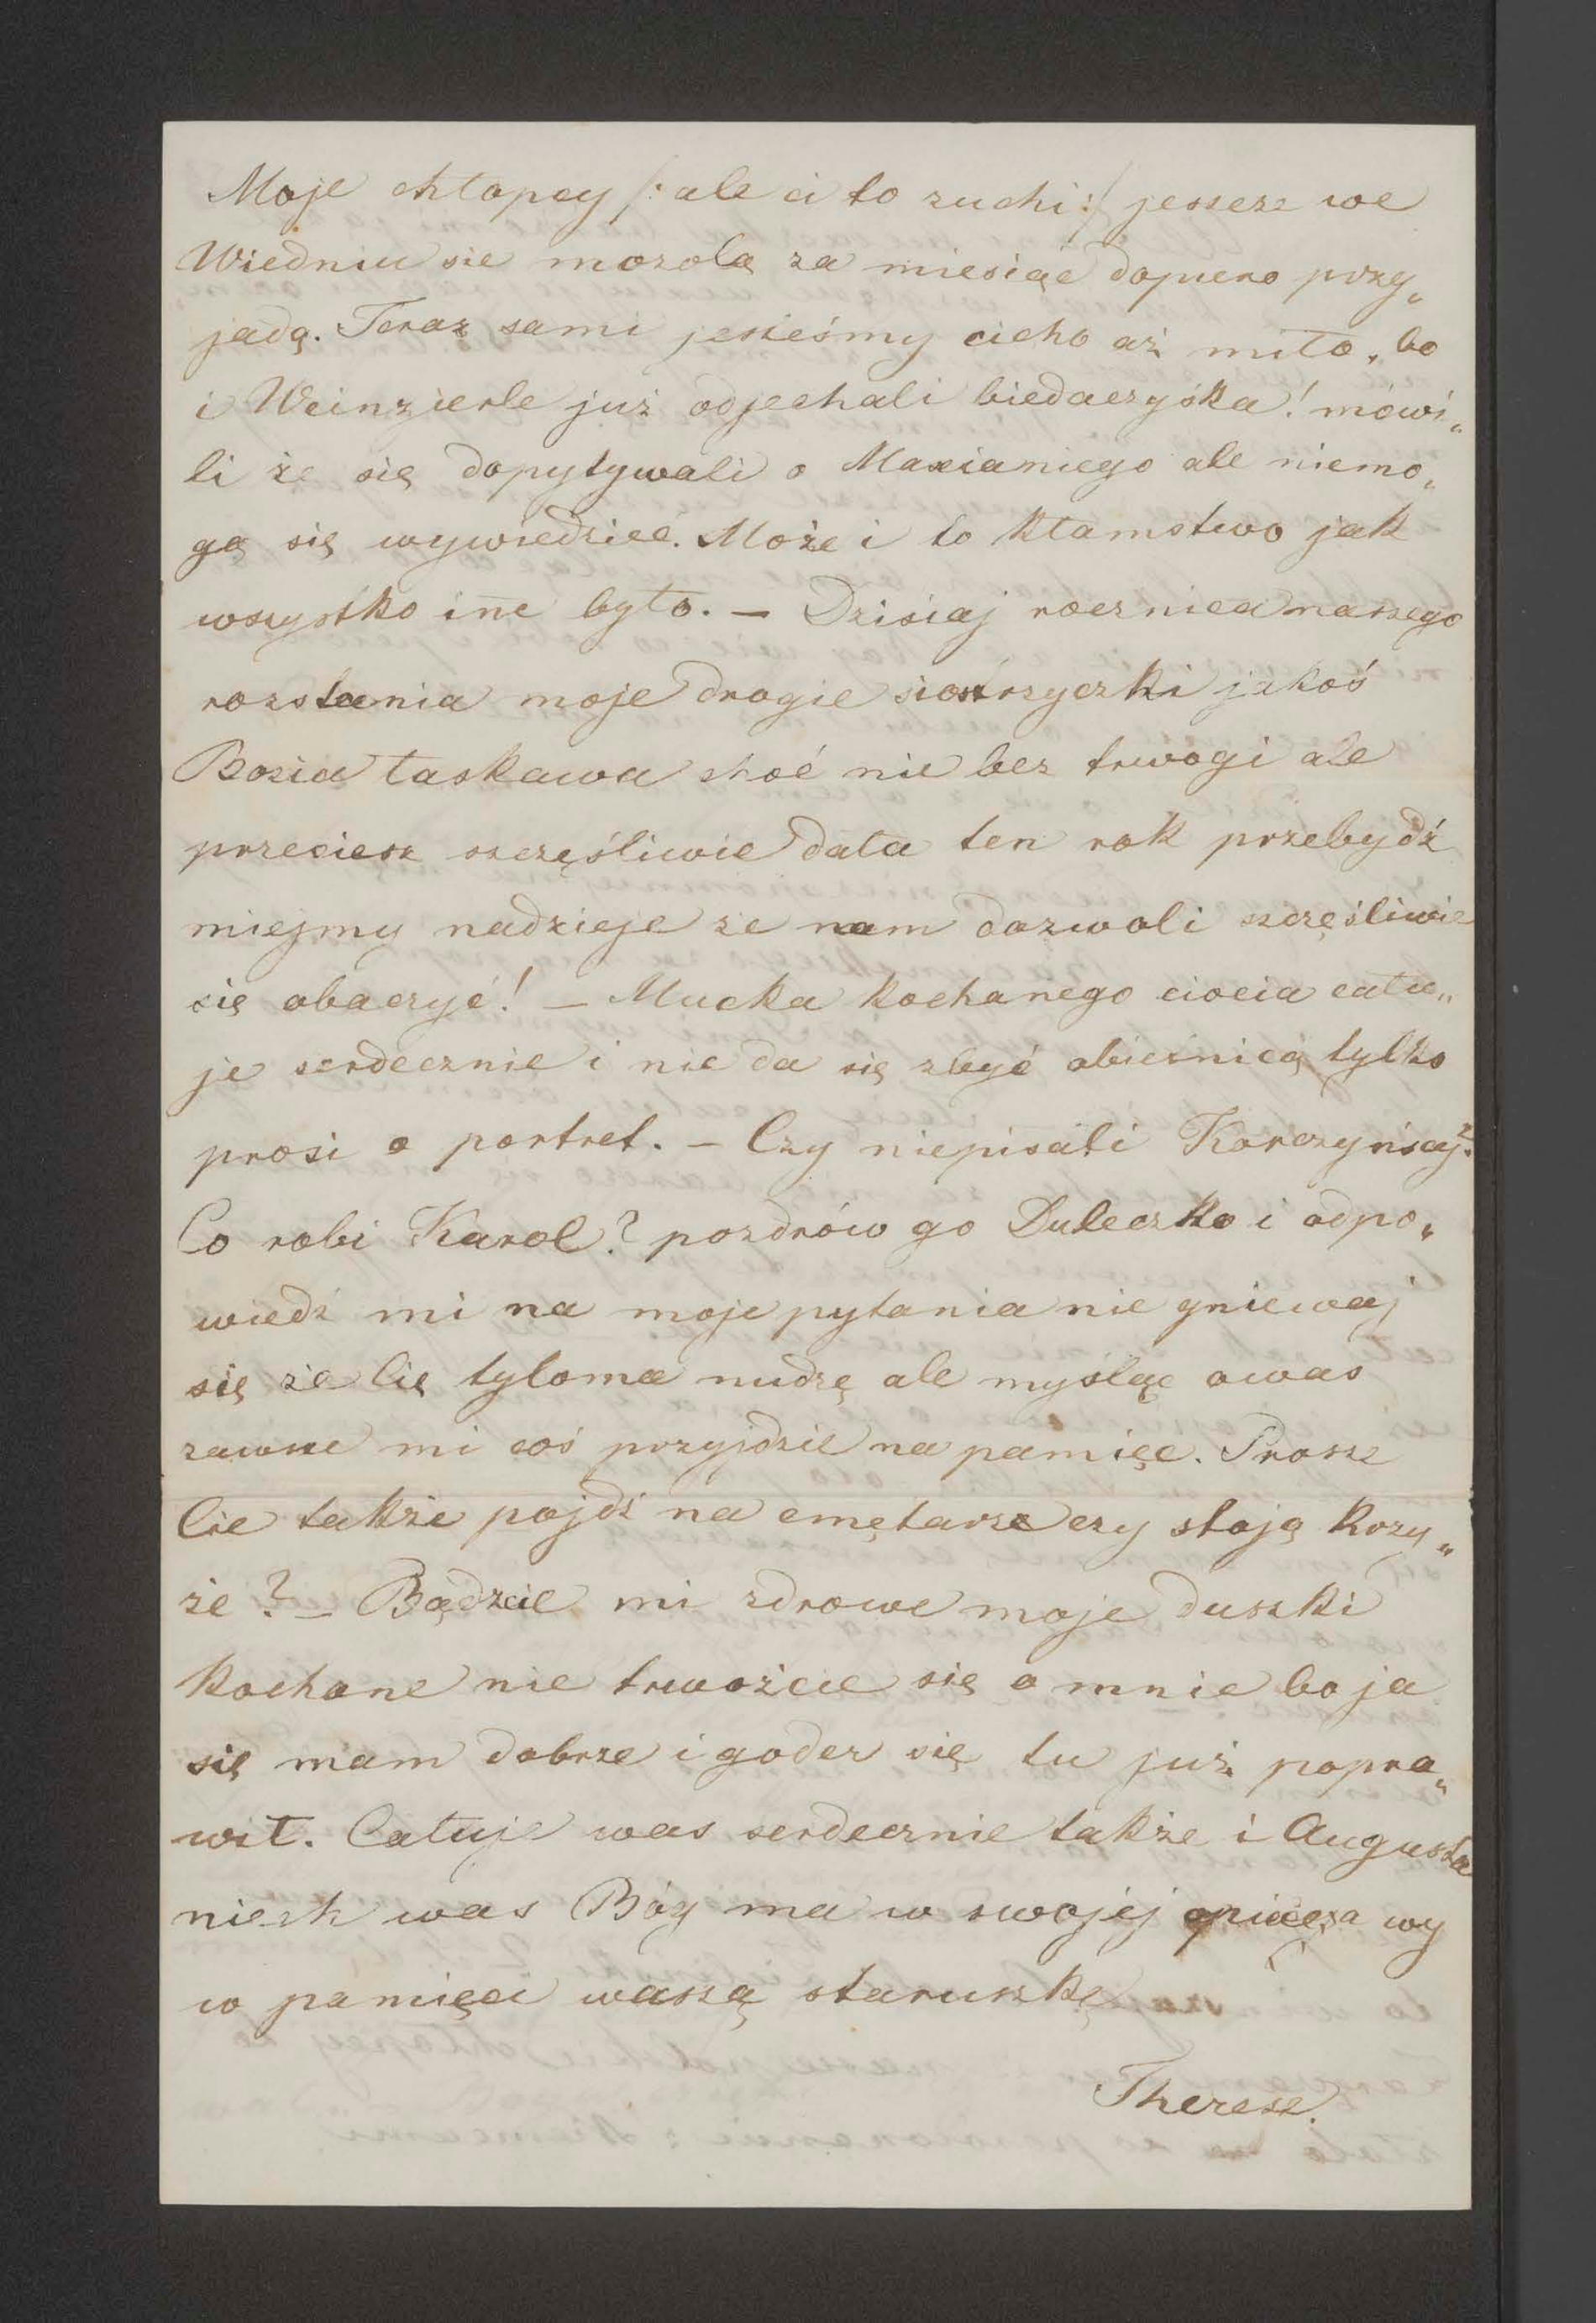 Moje chłopcy /: ale ci to zuchi :/ jeszcze we
Wiedniu sie mozolą za miesiąc dopiero przy„
jadą. Teraz sami jesteśmy cicho aż miło, bo
i Weinzierle już odjechali biedaczyska! mówi„
li że się dopytywali o Maxianiego ale niemo„
gą się wywiedzieć. Może i to kłamstwo jak
wszystko in̄e było. — Dzisiaj rocznica naszego
rozstania moje drogie siostrzyczki jakoś
Bozia łaskawa choć nie bez trwogi ale
przeciesz szczęśliwie dała ten rok przebydź
miejmy nadzieje że nam dozwoli szczęśliwie
się obaczyć! — Mucka kochanego ciocia cału„
je serdecznie i nie da się zbyć obieśnicą tylko
prosi o portret. — Czy niepisali Korczyńscy?
Co robi Karol? pozdrów go Duleczko i odpo„
wiedź mi na moje pytania nie gniewaj
się że Cię tyloma nudzę ale myśląc o was
zawsze mi coś przyjdzie na pamięć. Prosze
Cie także pojdź na cmętarz czy stoją krzy„
że? — Bądźcie mi zdrowe moje duszki
kochane nie trwożcie się o mnie bo ja
się mam dobrze i goder się tu już popra„
wił. Całuje was serdecznie także i Augusta
niech was Bóg ma w swojej opiece, a wy
w pamięci waszą staruszkę
Therese.